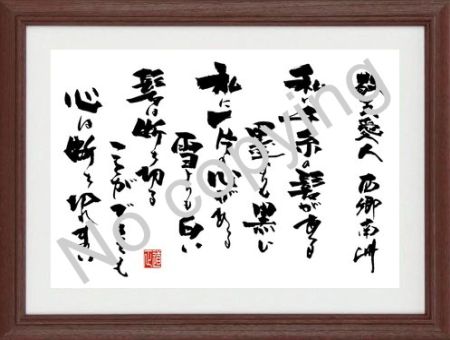 敬天愛人 西郷南洲
私に千糸の髪がある
墨よりも黒い
私に一片の心がある
雪よりも白い
髪は断ち切る
ことができても
心は断ち切れない
No copying